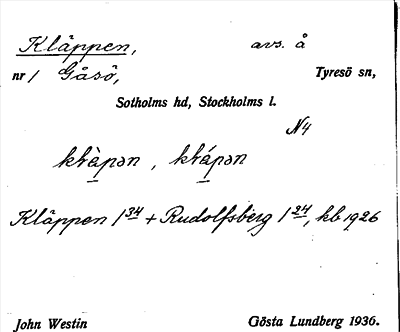 Kläppen, avs. å
nr 1 Gåsö, Tyresö sn,
Sotholms hd, Stockholms l.
N4
Kläppen 1 34 + Rudolfsberg 1 24, kb 1926
John Westin Gösta Lundberg 1936.